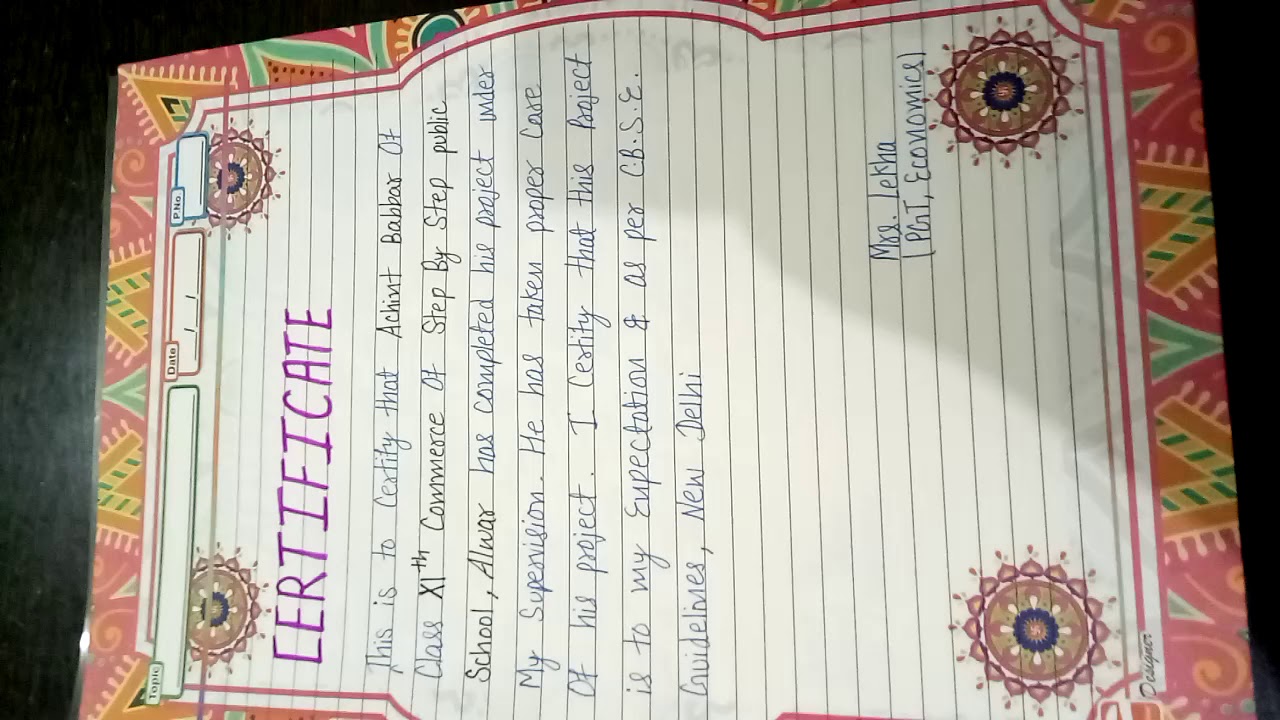 Topic
Date
P.No.
CERTIFICATE
This is to Certify that Achint Babbar Of
Class XIth Commerce Of Step By Step public
School, Alwar has completed his project under
My Supervision. He has taken proper Care
Of his project. I Certify that this Project
is to my Expectation & as per C.B.S.E.
Guidelines, New Delhi
Mrs. Lekha
[PGT, Economics]
Designer